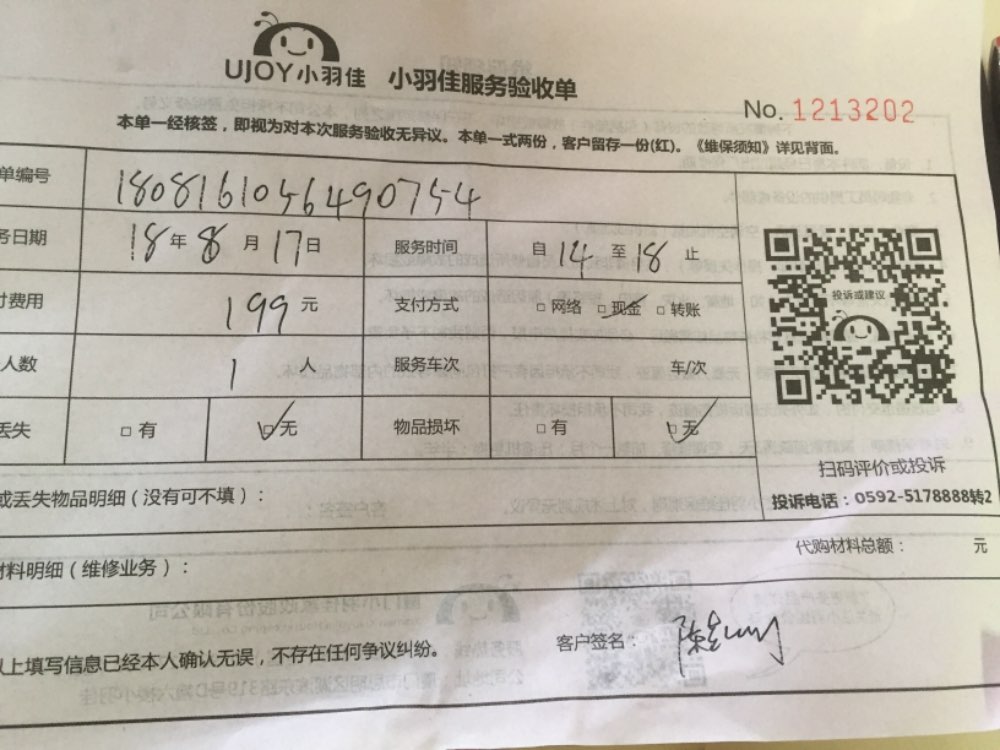 UJOY小羽佳 小羽佳服务验收单
No. 1213202
本单一经核签，即视为对本次服务验收无异议。本单一式两份，客户留存一份(红)。《维保须知》详见背面。
单编号 18081610564490754
务日期 18年8月17日 服务时间 自14至18止
付费用 199元 支付方式 □网络 □现金 □转账
人数 1人 服务车次 车/次
丢失 □有 □无 物品损坏 □有 □无
投诉或建议
扫码评价或投诉
投诉电话：0592-5178888转2
或丢失物品明细（没有可不填）：
代购材料总额： 元
材料明细（维修业务）：
以上填写信息已经本人确认无误，不存在任何争议纠纷。 客户签名：